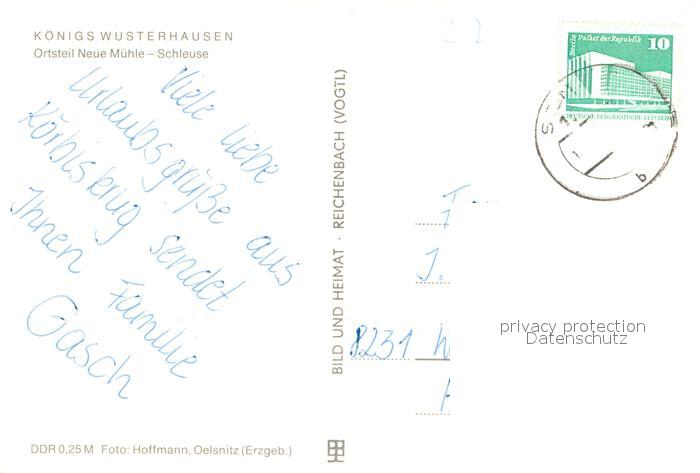 KÖNIGS WUSTERHAUSEN
Ortsteil Neue Mühle – Schleuse
Viele liebe
Urlaubsgrüße aus
Körbiskrug sendet
Ihnen Familie
Gasch
DDR 0,25 M Foto: Hoffmann, Oelsnitz (Erzgeb.)
BILD UND HEIMAT · REICHENBACH (VOGTL)
Berlin Palast der Republik 10
DEUTSCHE DEMOKRATISCHE REPUBLIK
b
F
J.
8231 W
privacy protection
Datenschutz